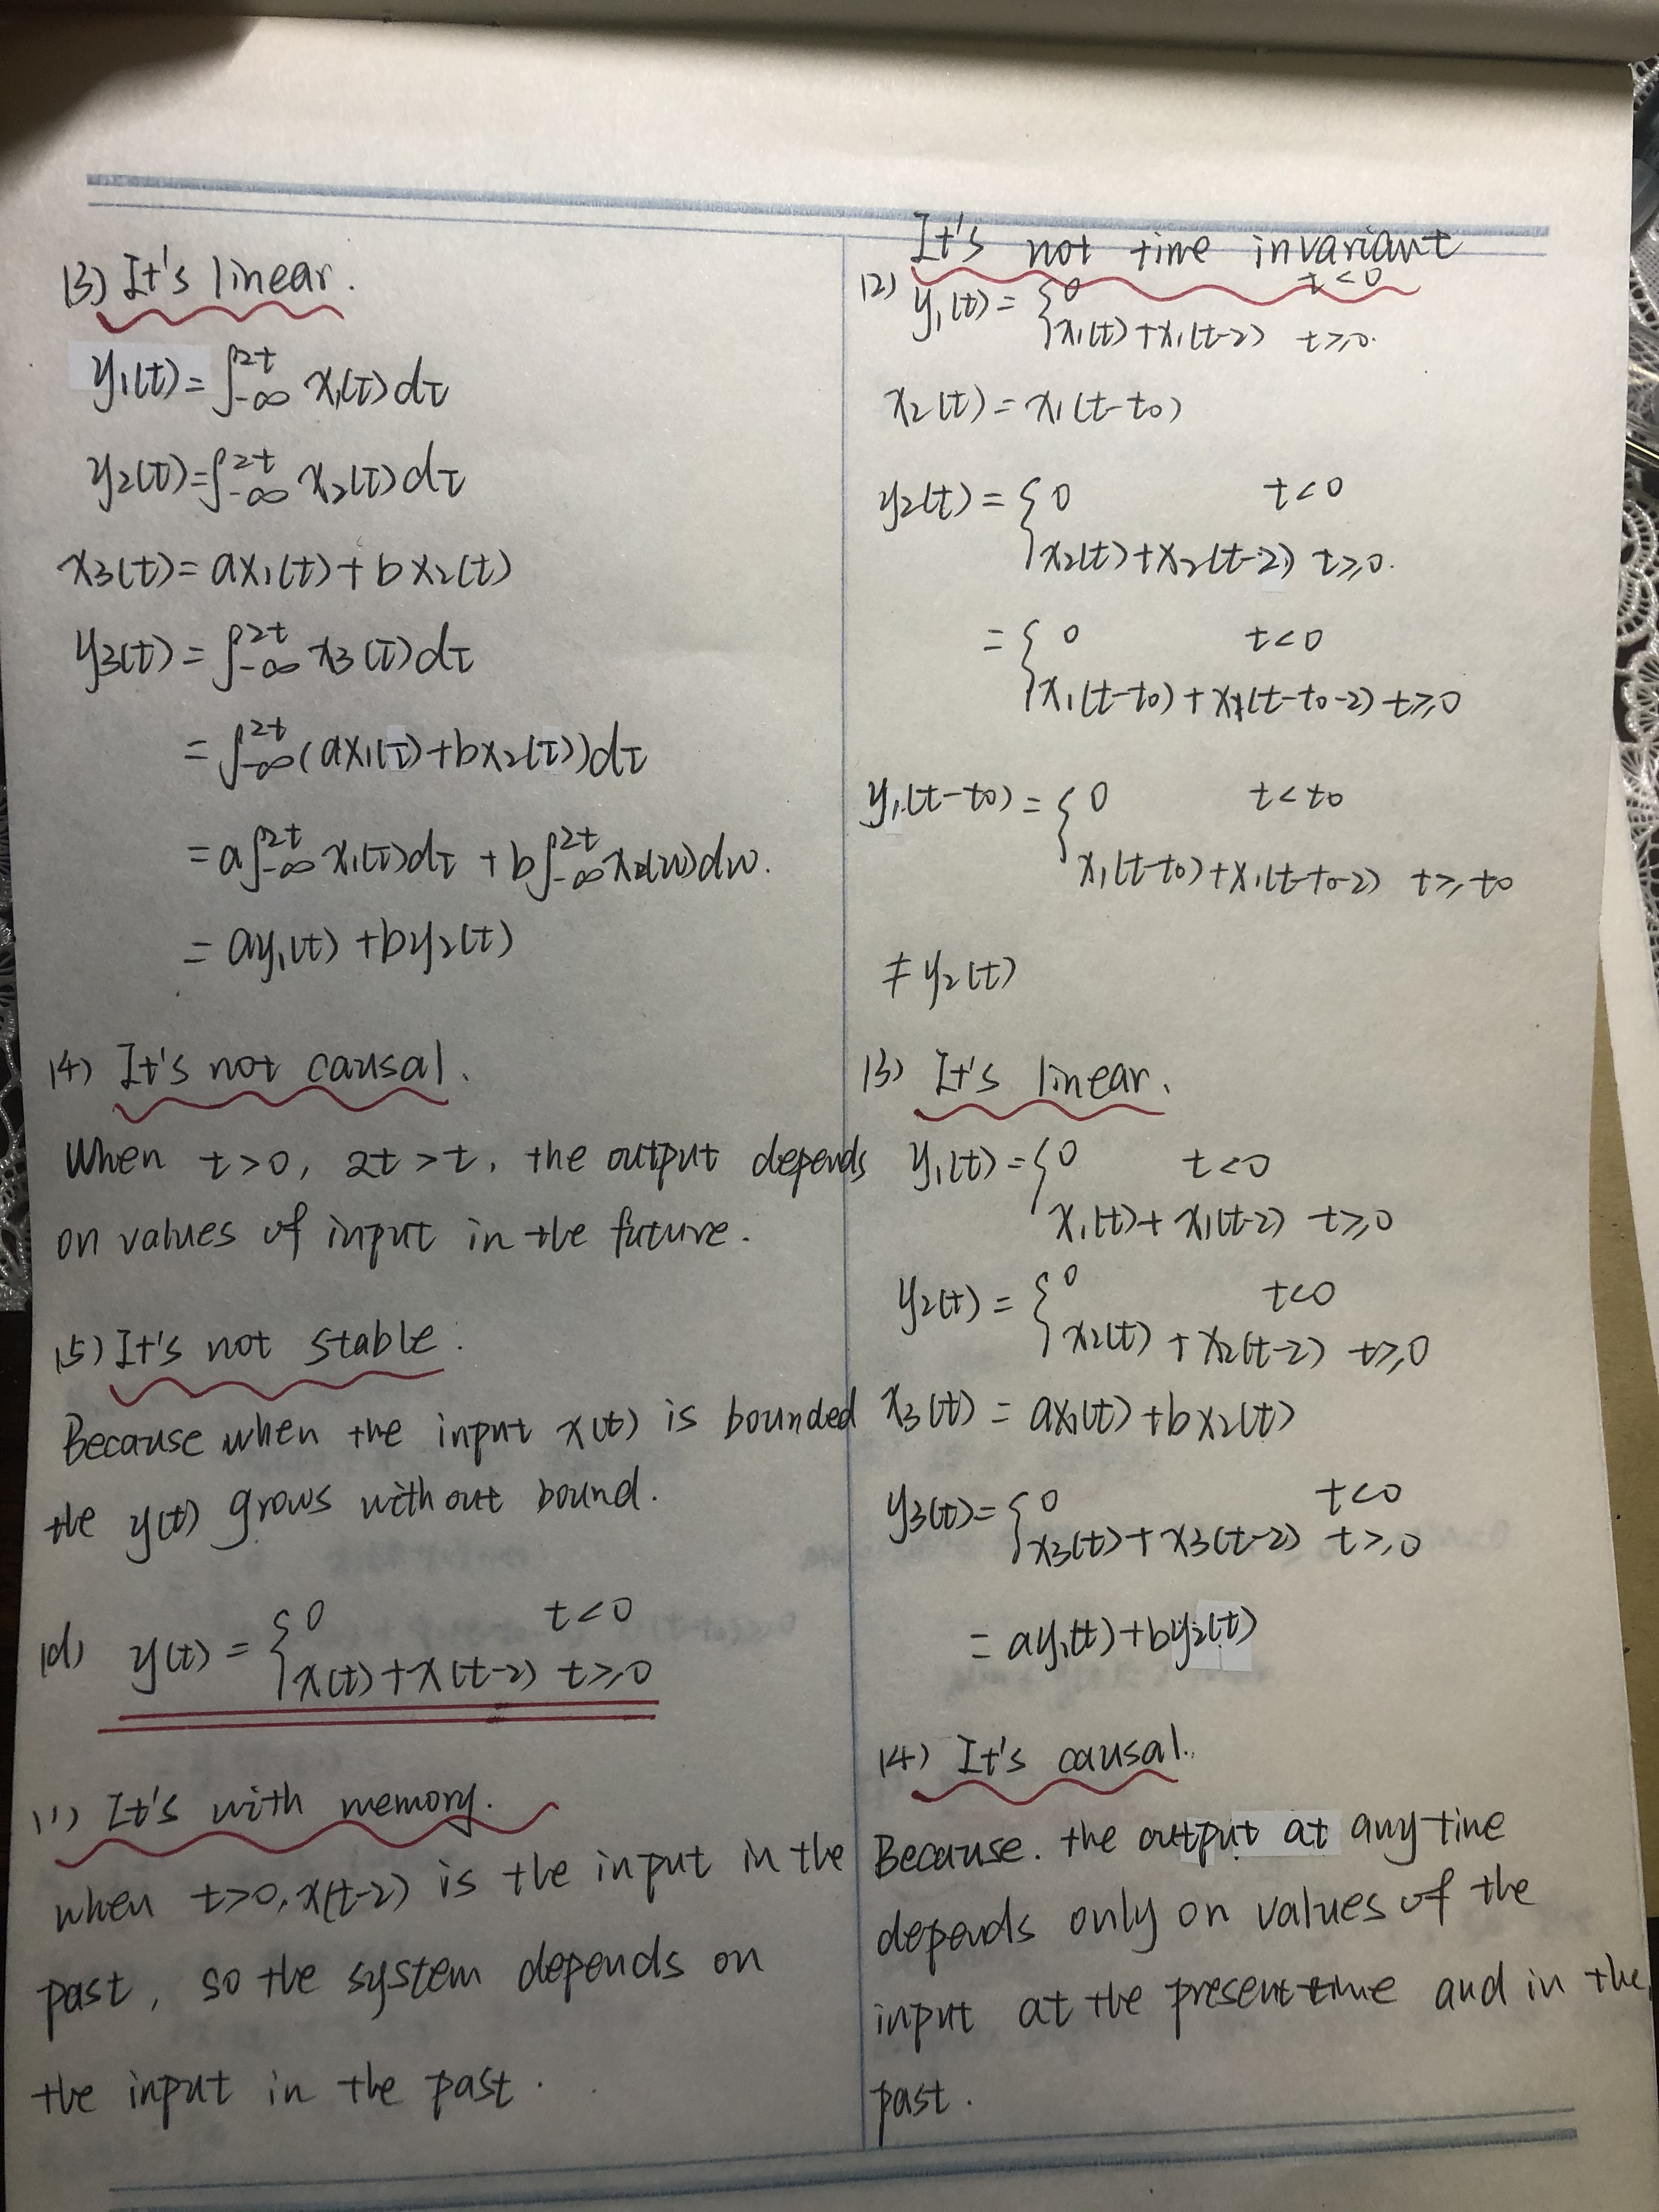 (3) It's linear.
y₁(t)=∫_{-∞}^{2t} x₁(τ)dτ
y₂(τ)=∫_{-∞}^{2t} x₂(τ)dτ
x₃(t)=ax₁(t)+bx₂(t)
y₃(t)=∫_{-∞}^{2t} x₃(τ)dτ
=∫_{-∞}^{2t}(ax₁(τ)+bx₂(τ))dτ
=a∫_{-∞}^{2t} x₁(τ)dτ +b∫_{-∞}^{2t} x₂(w)dw.
=ay₁(t)+by₂(t)
(4) It's not causal.
When t>0, 2t>t, the output depends
on values of input in the future.
(5) It's not stable.
Because when the input x(t) is bounded
the y(t) grows without bound.
(d) y(t)={0 t<0
x(t)+x(t-2) t≥0
(1) It's with memory.
when t>0, x(t-2) is the input in the
past, so the system depends on
the input in the past.
It's not time invariant
(2) y₁(t)={0 t<0
x₁(t)+x₁(t-2) t≥0.
x₂(t)=x₁(t-t₀)
y₂(t)={0 t<0
x₂(t)+x₂(t-2) t≥0.
={0 t<0
x₁(t-t₀)+x₁(t-t₀-2) t≥0
y₁(t-t₀)={0 t<t₀
x₁(t-t₀)+x₁(t-t₀-2) t≥t₀
≠y₂(t)
(3) It's linear.
y₁(t)={0 t<0
x₁(t)+x₁(t-2) t≥0
y₂(t)={0 t<0
x₂(t)+x₂(t-2) t≥0
x₃(t)=ax₁(t)+bx₂(t)
y₃(t)={0 t<0
x₃(t)+x₃(t-2) t≥0
=ay₁(t)+by₂(t)
(4) It's causal.
Because. the output at any time
depends only on values of the
input at the present time and in the
past.